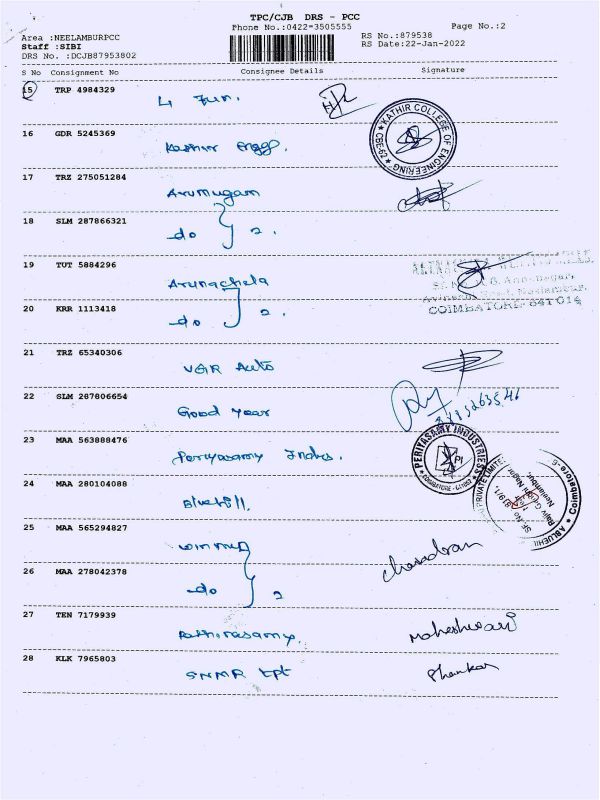 TPC/CJB DRS - PCC
Phone No.:0422-3505555
Page No.:2
Area :NEELAMBURPCC
RS No.:879538
Staff :SIBI
RS Date:22-Jan-2022
DRS No. :DCJB87953802
S No Consignment No Consignee Details Signature
15 TRP 4984329 4 Fun.
16 GDR 5245369 Kathir Engg.
KATHIR COLLEGE OF ENGINEERING
17 TRZ 275051284 Arumugam
18 SLM 287866321 do } 2.
19 TUT 5884296 Arunachela
20 KRR 1113418 do } 2.
COIMBATORE- 641 014
21 TRZ 65340306 VGR Auto
22 SLM 287806654 Good year
23 MAA 563888476 Periyasamy Inds.
PERIYASAMY INDUSTRIES
24 MAA 280104088 Bluehill.
PRIVATE LIMITE
Rajiv Gandhi Nagar
Neelambur,
Coimbatore-6
25 MAA 565294827
26 MAA 278042378 do } 2
27 TEN 7179939 Maheshwari
28 KLK 7965803 SNMR tpt Shankar